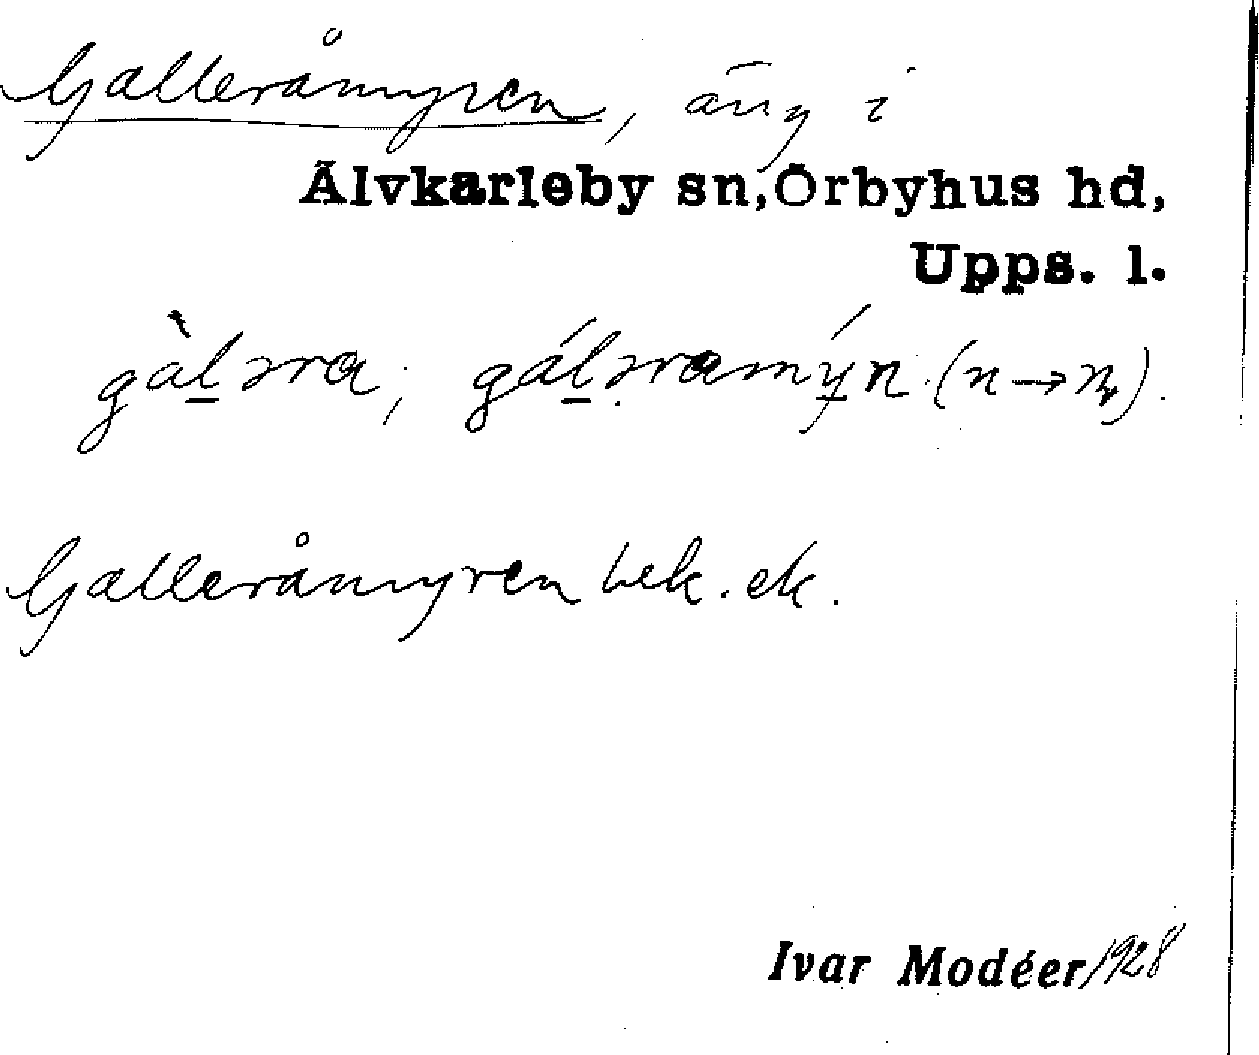 Galleråmyren, äng i
Älvkarleby sn, Örbyhus hd,
Upps. l.
gàl̲əra; gál̲əramý̲n (n→n̥).
Galleråmyren bek. ek.
Ivar Modéer/1928